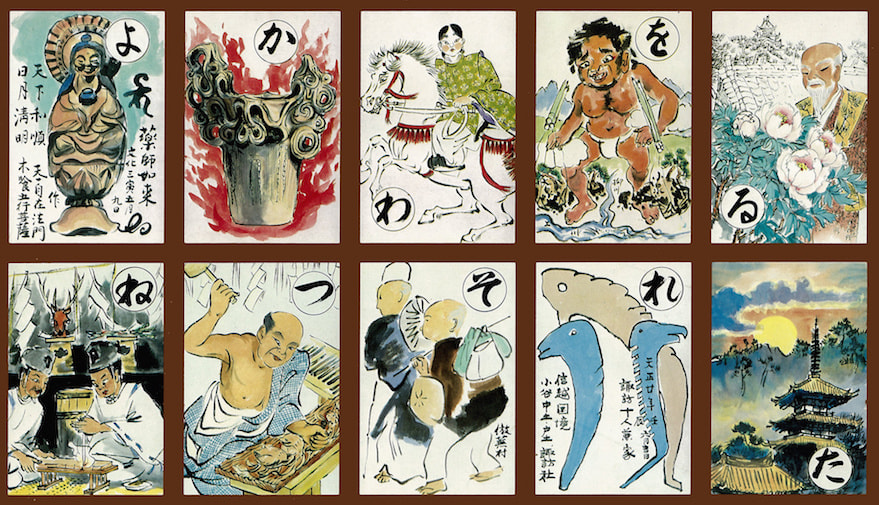 よ
天下和順
日月清明
藥師如来
文化三寅五月
九日
作
天一自在法門
木食五行菩薩
か
わ
を
る
ね
つ
そ
蕪村
れ
天正廿年
信越国境
小谷中土・戸土 諏訪社
た